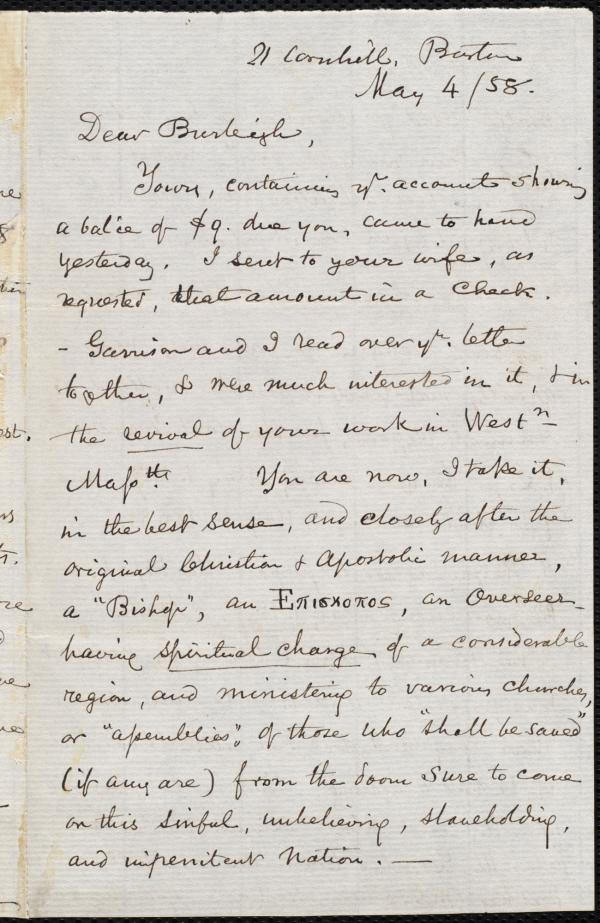 21 Cornhill, Boston
May 4/58.
Dear Burleigh,
Yours, containing yr. accounts showing
a bal'ce of $9. due you, came to hand
yesterday. I sent to your wife, as
requested, that amount in a Check.
- Garrison and I read over yr. letter
together, & were much interested in it, & in
the revival of your work in West n
Mass tts. You are now, I take it,
in the best sense, and closely after the
original Christian & Apostolic manner,
a "Bishop", an Επισκοπος, an Overseer-
having spiritual charge of a considerable
region, and ministering to various churches,
or "assemblies", of those who "shall be saved"
(if any are) from the doom sure to come
on this sinful, unbelieving, slaveholding,
and impenitent Nation. —